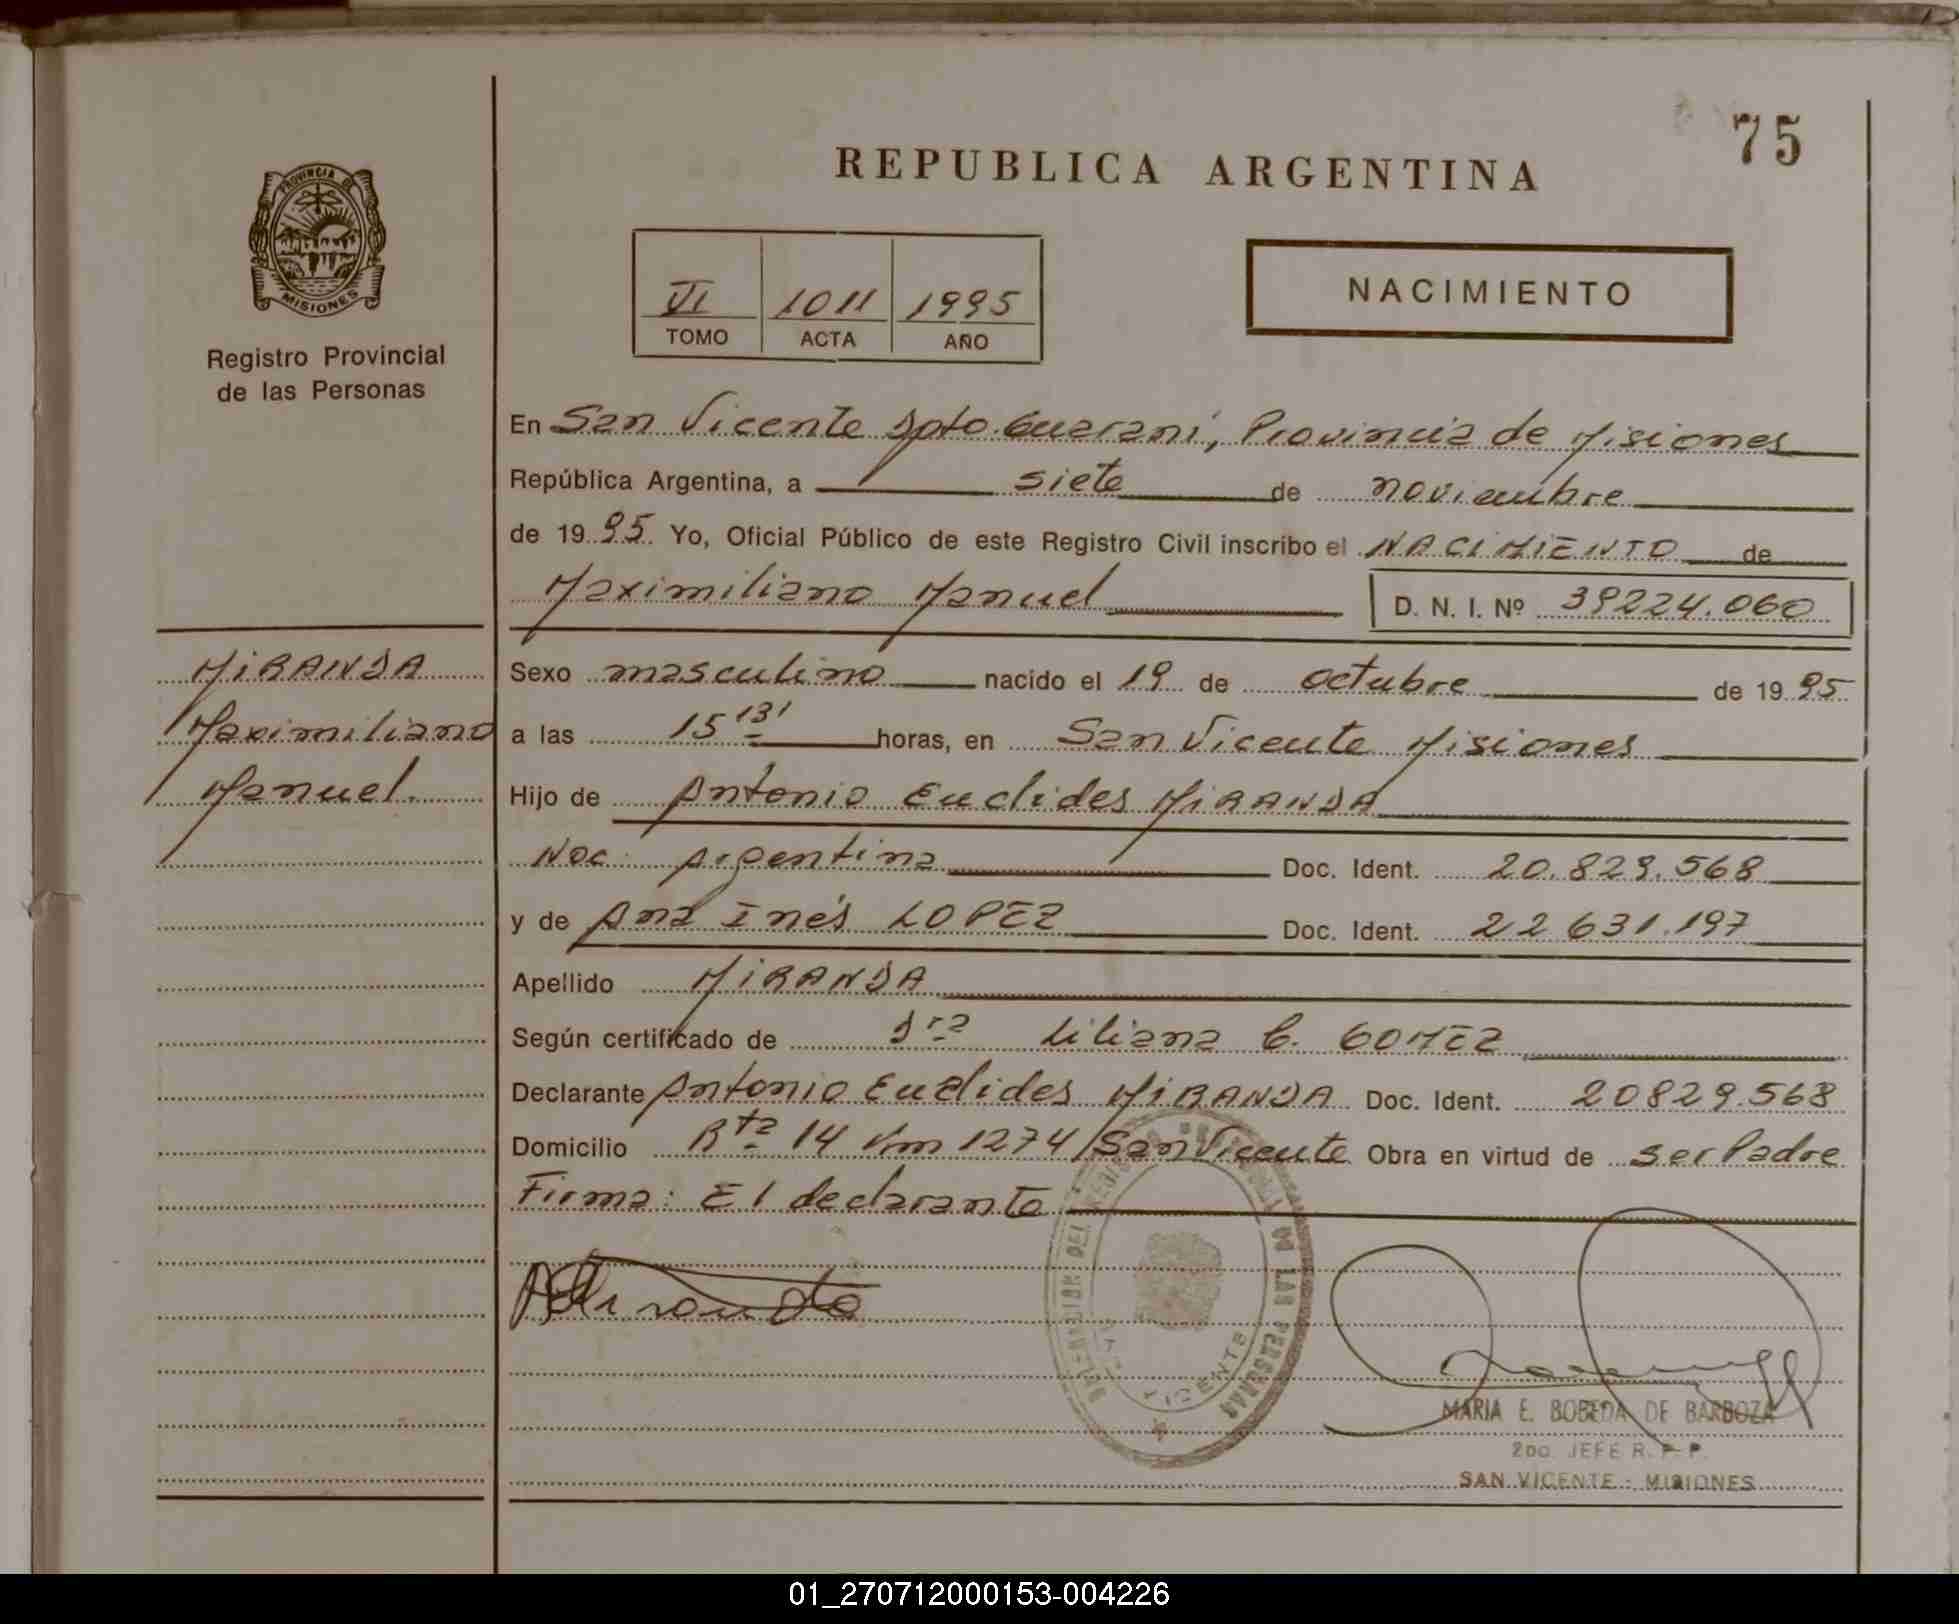 75
REPUBLICA ARGENTINA
PROVINCIA DE
MISIONES
Registro Provincial
de las Personas
VI 1011 1995
TOMO ACTA AÑO
NACIMIENTO
En San Vicente Dpto. Guaraní, Provincia de Misiones
República Argentina, a siete de noviembre
de 1995 Yo, Oficial Público de este Registro Civil inscribo el NACIMIENTO de
Maximiliano Manuel D. N. I. Nº 39224.060
MIRANDA
Maximiliano
Manuel.
Sexo masculino nacido el 19 de octubre de 1995
a las 15 13' horas, en San Vicente Misiones
Hijo de Antonio Euclides MIRANDA
Nac. Argentina Doc. Ident. 20.829.568
y de Ana Inés LOPEZ Doc. Ident. 22 631.197
Apellido MIRANDA
Según certificado de Dra Liliana C. GOMEZ
Declarante Antonio Euclides MIRANDA Doc. Ident. 20829.568
Domicilio Rta 14 Km 1274 San Vicente Obra en virtud de ser Padre
Firma: El declarante
DELEGACION DEL REGISTRO PROVINCIAL DE LAS PERSONAS
VICENTE
MARIA E. BOBEDA DE BARBOZA
2do. JEFE R. P. P.
SAN VICENTE - MISIONES
01_270712000153-004226